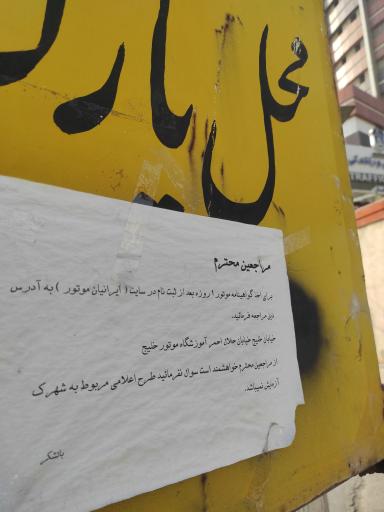 محل پارک
TRAFFI
مراجعین محترم
برای اخذ گواهینامه موتور ۱ روزه بعد از ثبت نام در سایت ( ایرانیان موتور ) به آدرس
زیر مراجعه فرمائید.
خیابان خلیج خیابان جلال احمر آموزشگاه موتور خلیج
از مراجعین محترم خواهشمند است سوال نفرمائید طرح اعلامی مربوط به شهرک
آزمایش نمیباشد.
باتشکر